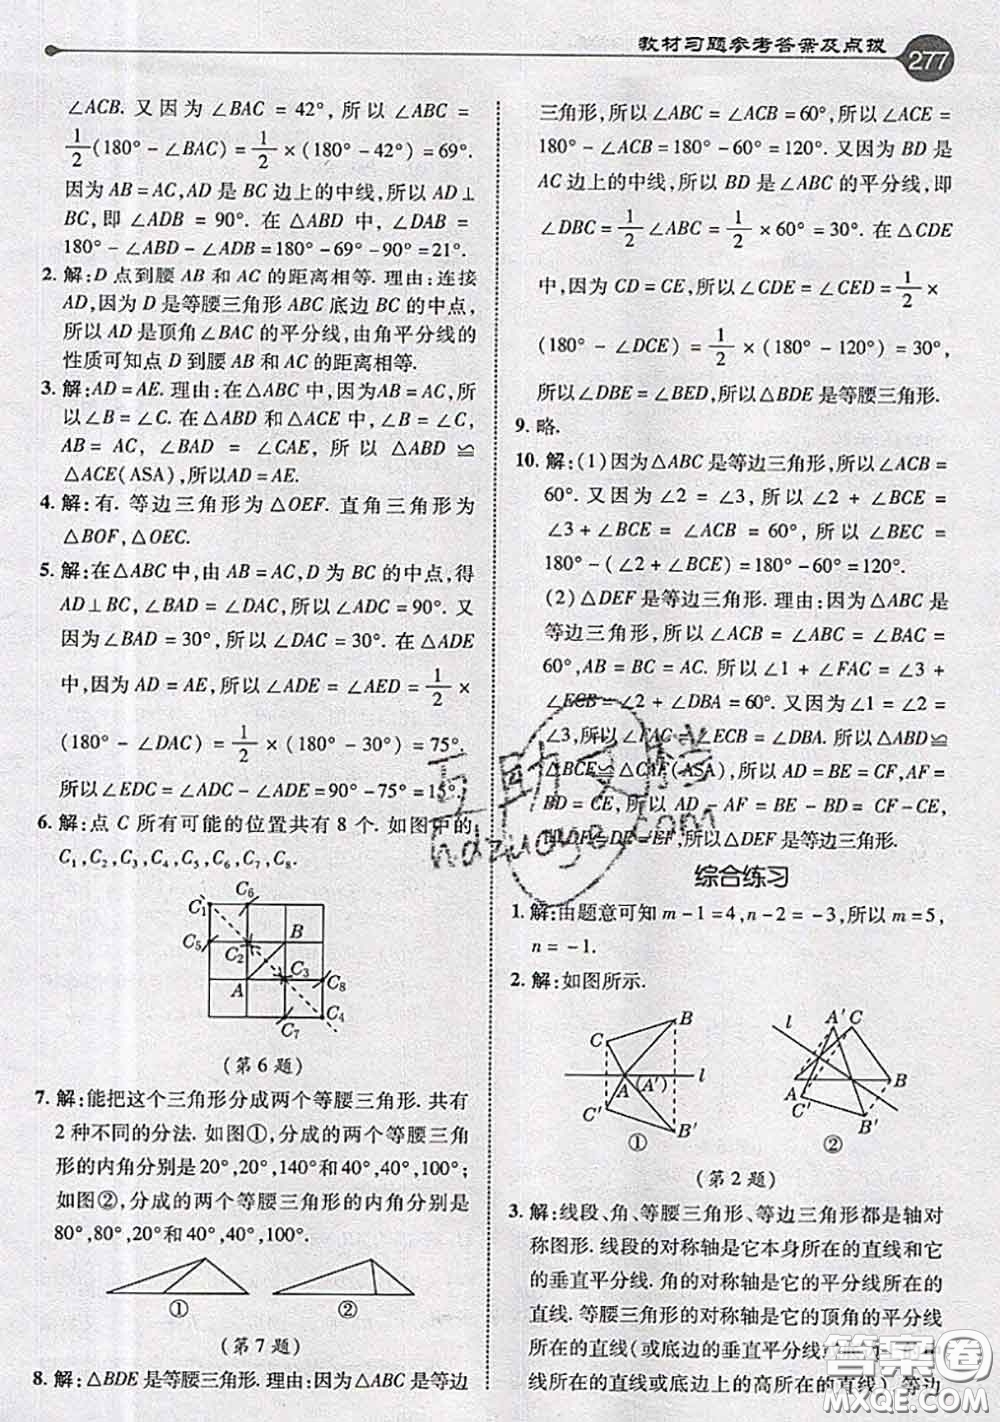 教材习题参考答案及点拨
277
∠ACB. 又因为∠BAC=42°,所以∠ABC=
1/2(180°-∠BAC)=1/2×(180°-42°)=69°.
因为AB=AC,AD是BC边上的中线,所以AD⊥
BC,即∠ADB=90°. 在△ABD中,∠DAB=
180°-∠ABD-∠ADB=180°-69°-90°=21°.
2. 解:D点到腰AB和AC的距离相等. 理由:连接
AD,因为D是等腰三角形ABC底边BC的中点,
所以AD是顶角∠BAC的平分线,由角平分线的
性质可知点D到腰AB和AC的距离相等.
3. 解:AD=AE. 理由:在△ABC中,因为AB=AC,所
以∠B=∠C. 在△ABD和△ACE中,∠B=∠C,
AB=AC,∠BAD=∠CAE,所以△ABD≌
△ACE(ASA),所以AD=AE.
4. 解:有. 等边三角形为△OEF. 直角三角形为
△BOF,△OEC.
5. 解:在△ABC中,由AB=AC,D为BC的中点,得
AD⊥BC,∠BAD=∠DAC,∠ADC=90°. 又
因为∠BAD=30°,所以∠DAC=30°. 在△ADE
中,因为AD=AE,所以∠ADE=∠AED=1/2×
(180°-∠DAC)=1/2×(180°-30°)=75°.
所以∠EDC=∠ADC-∠ADE=90°-75°=15°.
6. 解:点C所有可能的位置共有8个. 如图中的
C₁,C₂,C₃,C₄,C₅,C₆,C₇,C₈.
C₁
C₆
C₅
C₂
B
A
C₃
C₈
C₇
C₄
(第6题)
7. 解:能把这个三角形分成两个等腰三角形. 共有
2种不同的分法. 如图①,分成的两个等腰三角
形的内角分别是20°,20°,140°和40°,40°,100°;
如图②,分成的两个等腰三角形的内角分别是
80°,80°,20°和40°,40°,100°.
①
②
(第7题)
8. 解:△BDE是等腰三角形. 理由:因为△ABC是等边
三角形,所以∠ABC=∠ACB=60°,所以∠ACE=
180°-∠ACB=180°-60°=120°. 又因为BD是
AC边上的中线,所以BD是∠ABC的平分线,即
∠DBC=1/2∠ABC=1/2×60°=30°. 在△CDE
中,因为CD=CE,所以∠CDE=∠CED=1/2×
(180°-∠DCE)=1/2×(180°-120°)=30°.
所以∠DBE=∠BED,所以△BDE是等腰三角形.
9. 略.
10. 解:(1)因为△ABC是等边三角形,所以∠ACB=
60°. 又因为∠2=∠3,所以∠2+∠BCE=
∠3+∠BCE=∠ACB=60°,所以∠BEC=
180°-(∠2+∠BCE)=180°-60°=120°.
(2)△DEF是等边三角形. 理由:因为△ABC是
等边三角形,所以∠ACB=∠ABC=∠BAC=
60°,AB=BC=AC. 所以∠1+∠FAC=∠3+
∠ECB=∠2+∠DBA=60°. 又因为∠1=∠2=
∠3,所以∠FAC=∠ECB=∠DBA. 所以△ABD≌
△BCE≌△CAF(ASA),所以AD=BE=CF,AF=
BD=CE. 所以AD-AF=BE-BD=CF-CE,
即FD=DE=EF,所以△DEF是等边三角形.
综合练习
1. 解:由题意可知m-1=4,n-2=-3,所以m=5,
n=-1.
2. 解:如图所示.
B
C
A
(A′)
l
C′
B′
①
l
A′
C
B
A
C′
B′
②
(第2题)
3. 解:线段、角、等腰三角形、等边三角形都是轴对
称图形. 线段的对称轴是它本身所在的直线和它
的垂直平分线. 角的对称轴是它的平分线所在的
直线. 等腰三角形的对称轴是它的顶角的平分线
所在的直线(或底边的垂直平分线
线所在的直线或底边上的高所在的直线). 等边
互助文学
hdzuoye.com
答案圈
MXQE.COM